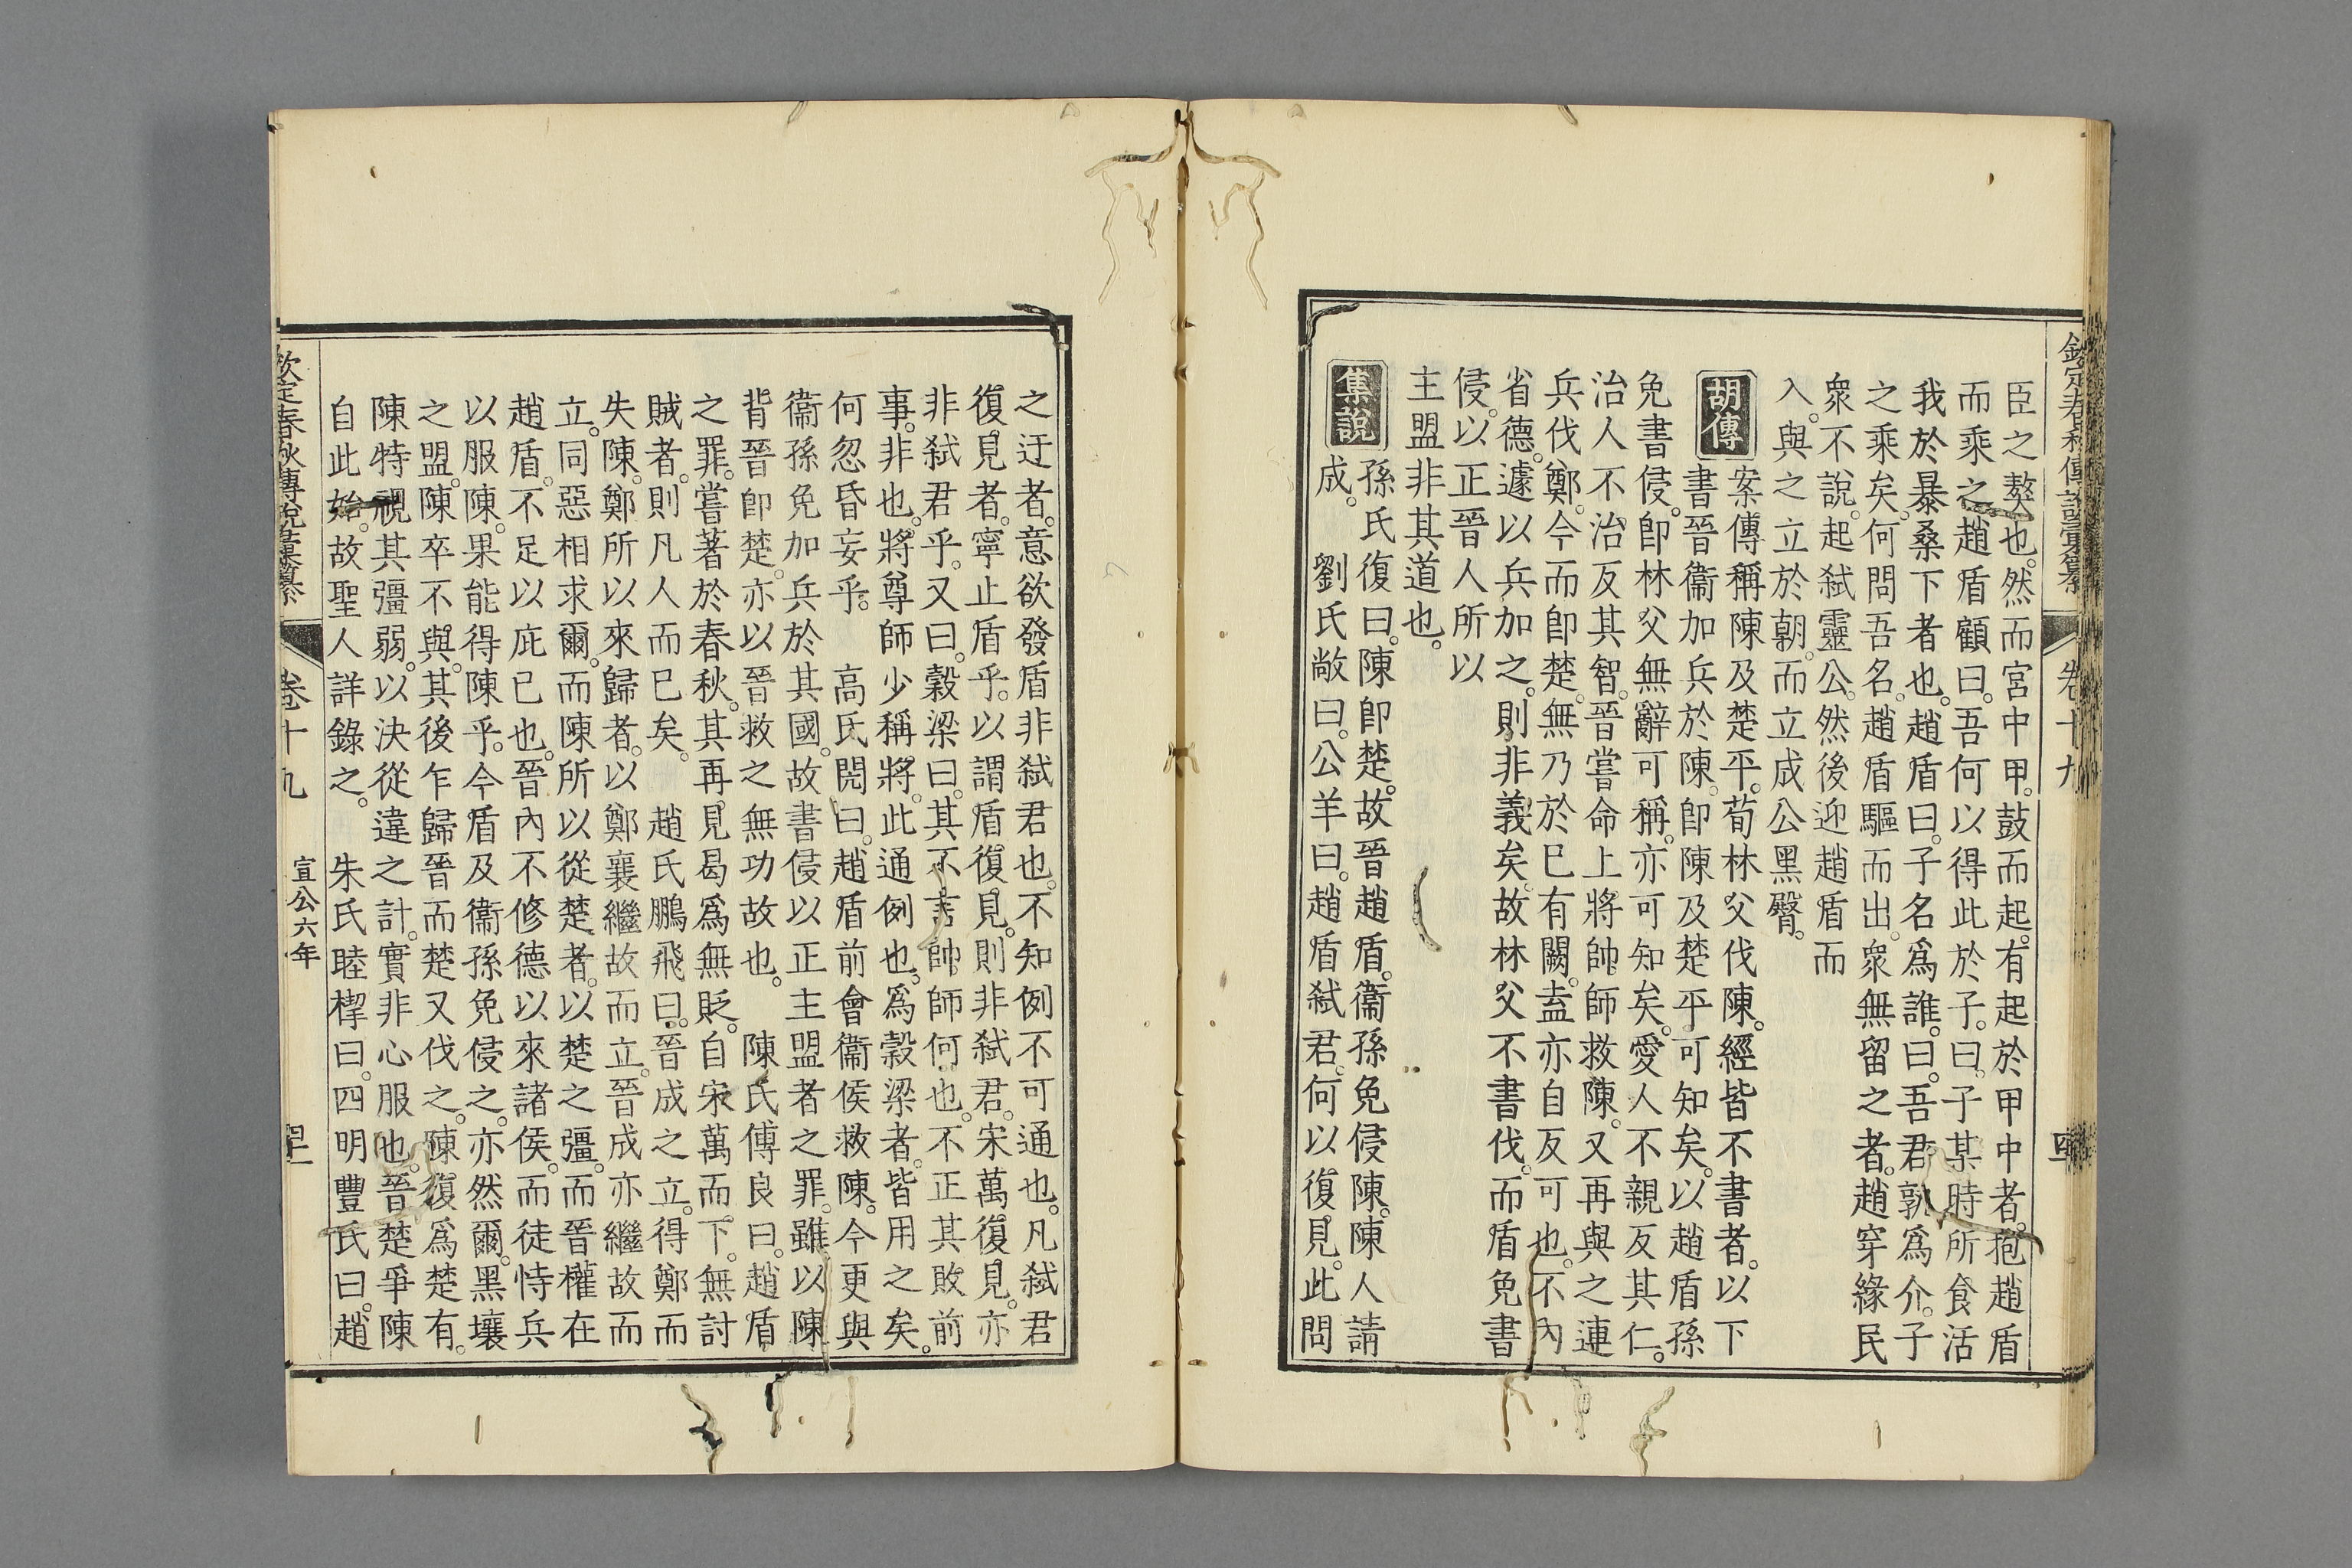 欽定春秋傳說彙纂 卷十九
臣之獒也。然而宮中甲。鼓而起。有起於甲中者。抱趙盾
而乘之。趙盾顧曰。吾何以得此於子。曰。子某時所食活
我於暴桑下者也。趙盾曰。子名爲誰。曰。吾君孰爲介。子
之乘矣。何問吾名。趙盾驅而出。衆無留之者。趙穿緣民
衆不說。起弒靈公。然後迎趙盾而
入。與之立於朝。而立成公黑臀。
胡傳 案傳稱陳及楚平。荀林父伐陳。經皆不書者。以下
書晉衞加兵於陳。卽陳及楚平可知矣。以趙盾孫
免書侵。卽林父無辭可稱。亦可知矣。愛人不親反其仁。
治人不治反其智。晉嘗命上將帥師救陳。又再與之連
兵伐鄭。今而卽楚。無乃於已有闕。盍亦自反可也。不內
省德。遽以兵加之。則非義矣。故林父不書伐。而盾免書
侵。以正晉人所以
主盟非其道也。
集說 孫氏復曰。陳卽楚。故晉趙盾。衞孫免侵陳。陳人請
成。 劉氏敞曰。公羊曰。趙盾弒君。何以復見。此問
之迂者。意欲發盾非弒君也。不知例不可通也。凡弒君
復見者。寧止盾乎。以謂盾復見。則非弒君。宋萬。復見。亦
非弒君乎。又曰。穀梁曰。其不言帥師何也。不正其敗前
事。非也。將尊師少稱將。此通例也。爲穀梁者。皆用之矣。
何忽昏妄乎。 高氏閌曰。趙盾前會衞侯救陳。今更與
衞孫免加兵於其國。故書侵以正主盟者之罪。雖以陳
背晉卽楚。亦以晉救之無功故也。 陳氏傅良曰。趙盾
之罪。嘗著於春秋。其再見曷爲無貶。自宋萬而下。無討
賊者。則凡人而已矣。 趙氏鵬飛曰。晉成之立。得鄭而
失陳。鄭所以來歸者。以鄭襄繼故而立。晉成亦繼故而
立。同惡相求爾。而陳所以從楚者。以楚之彊。而晉權在
趙盾。不足以庇已也。晉內不修德以來諸侯。而徒恃兵
以服陳。果能得陳乎。今盾及衞孫免侵之。亦然爾。黑壤
之盟。陳卒不與。其後乍歸晉而楚又伐之。陳復爲楚有。
陳特視其彊弱。以決從違之計。實非心服也。晉楚爭陳
自此始。故聖人詳錄之。 朱氏睦㮮曰。四明豐氏曰。趙
欽定春秋傳說彙纂 卷十九 宣公六年